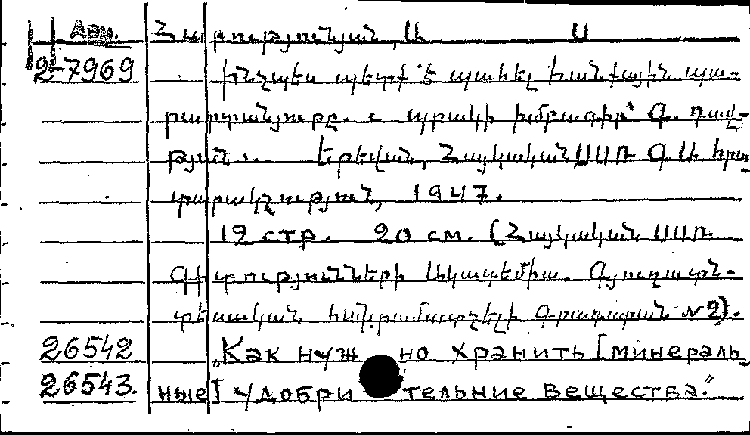 Арм. Հարությունյան, Ա. Ա
2-7969 Ինչպես պետք է պահել հանքային պա-
րարտանյութը. պրակի խմբագիր՝ Գ. Դավ-
թյան. Երեվան, Հայկական ՍՍՌ ԳԱ հրա-
տարակչություն, 1947.
12 стр. 20 см. (Հայկական ՍՍՌ
Գիտությունների Ակադեմիա. Գյուղատն-
տեսական հանրամատչելի գրադարան №2).
26542 „Как нужно хранить [минераль-
26543. ные] удобрительние вещества."